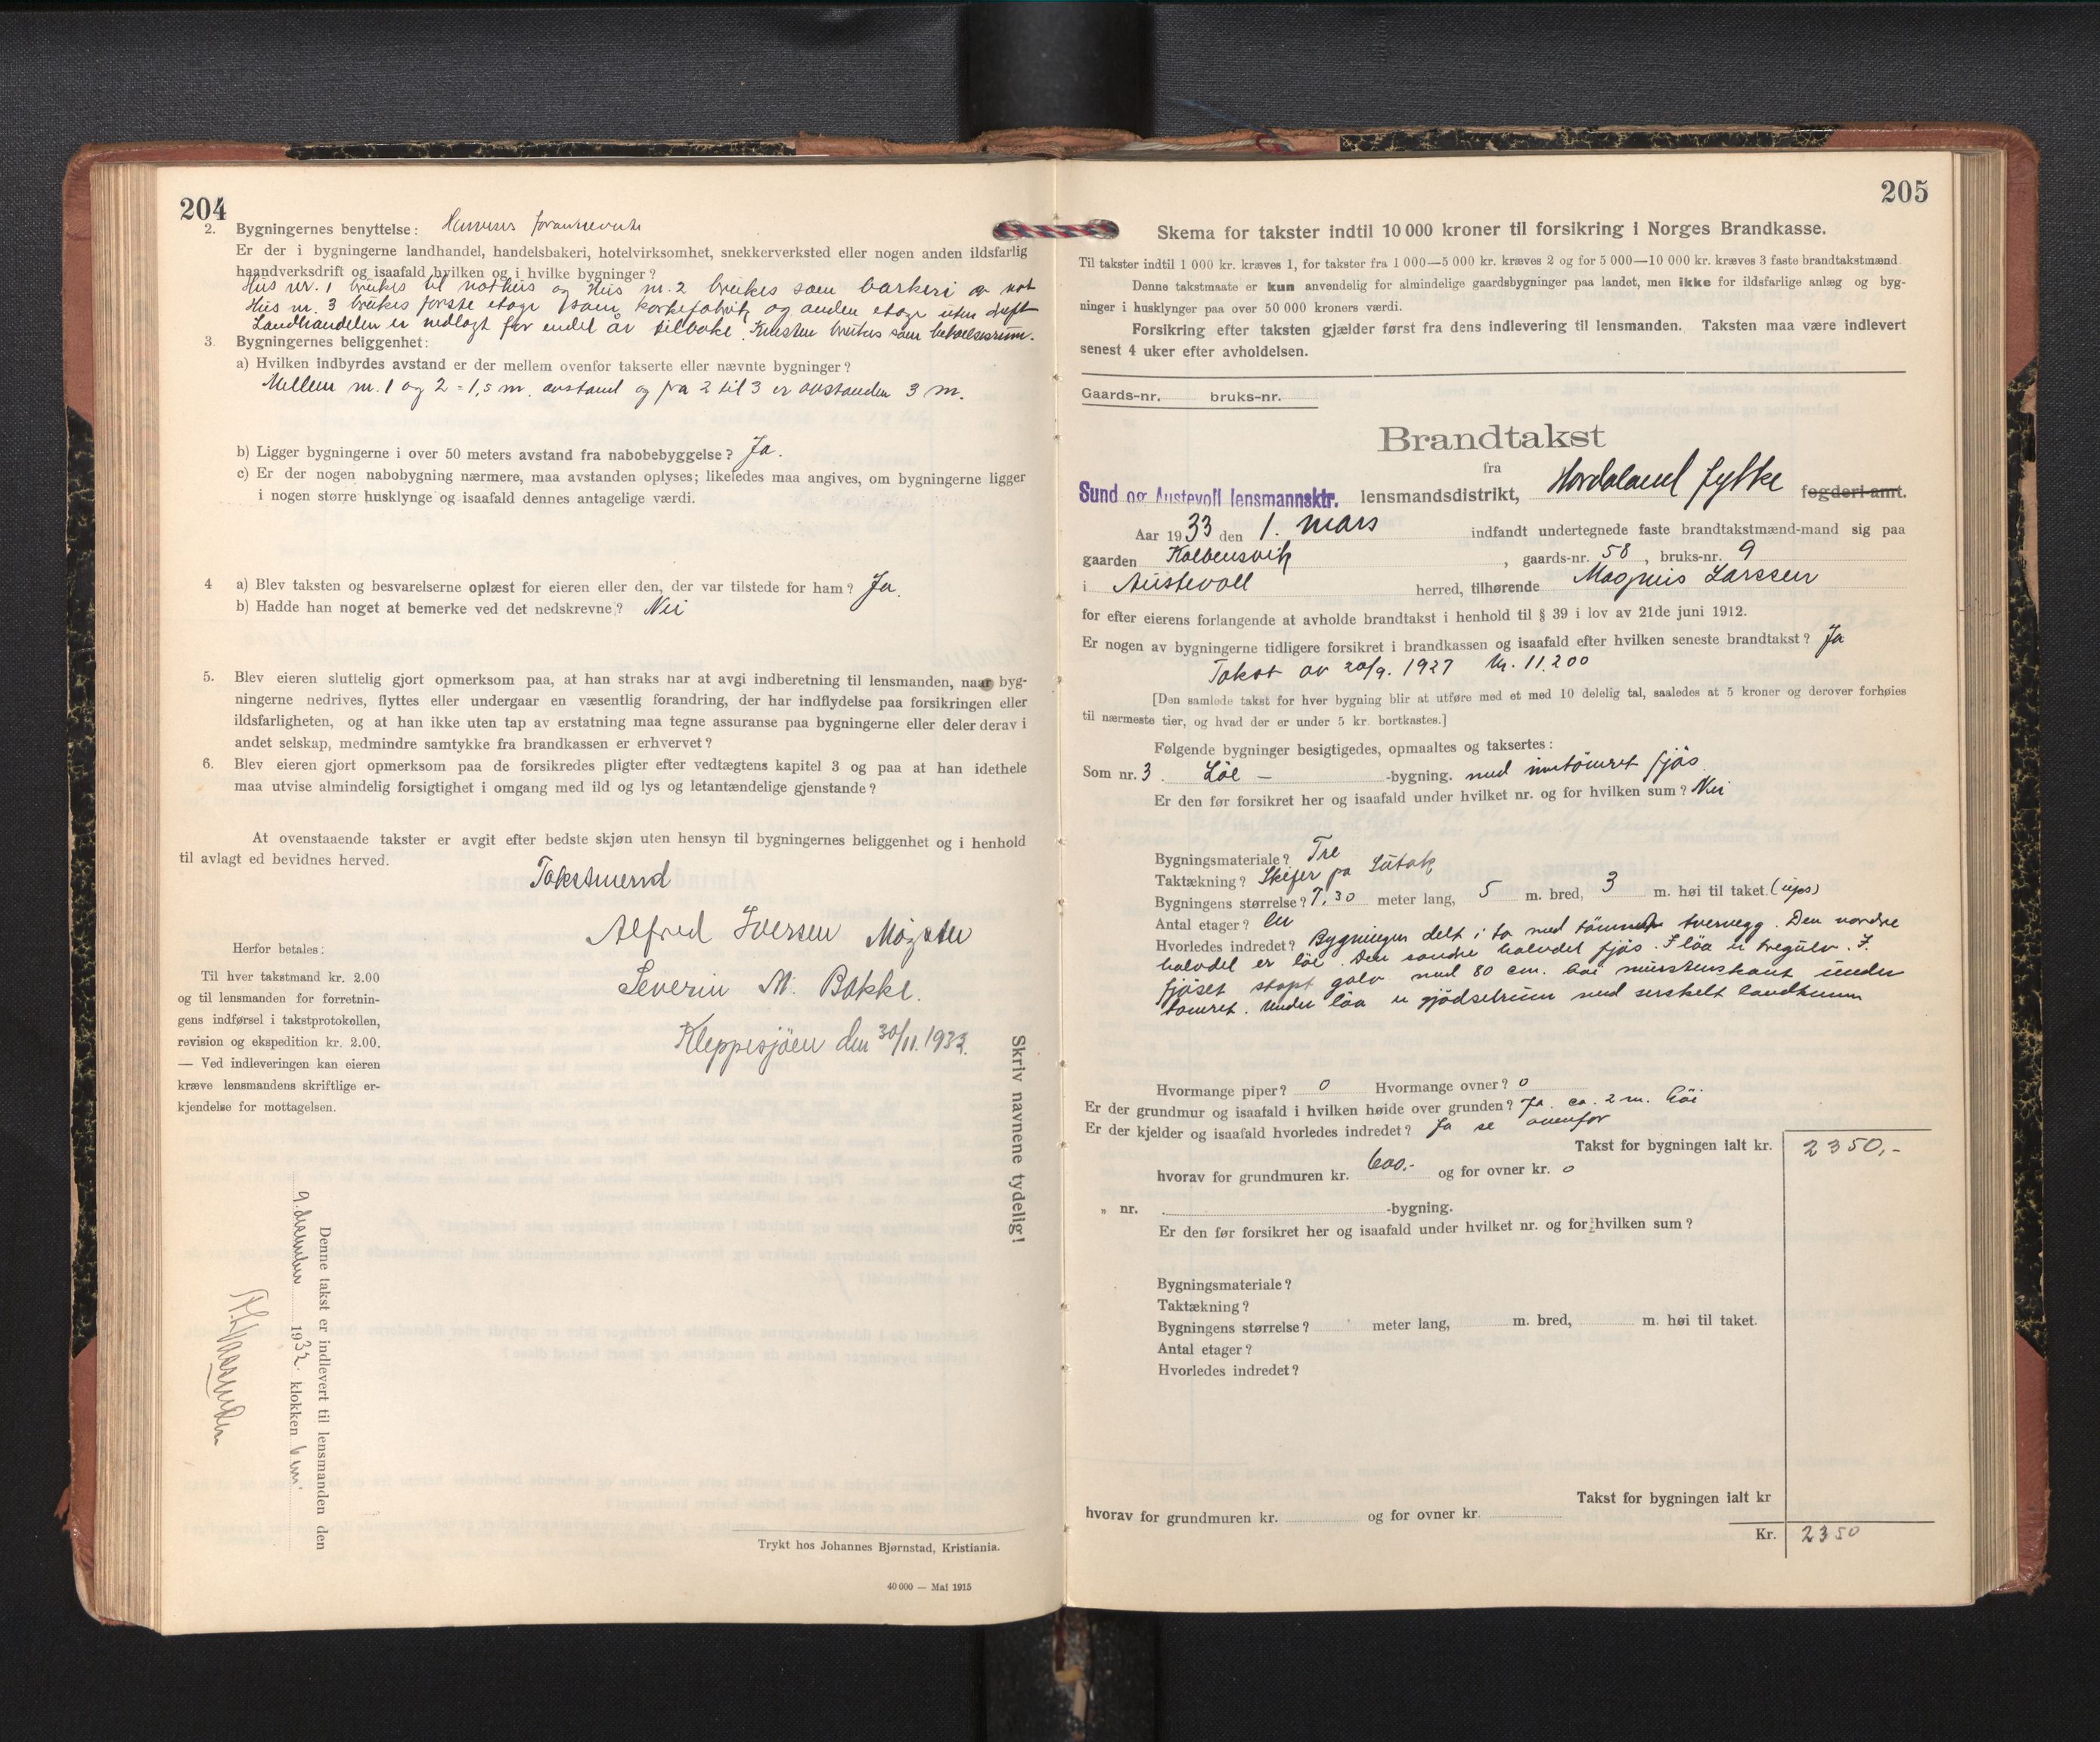 204
2. Bygningernes benyttelse: Henvises foranstående
Er der i bygningerne landhandel, handelsbakeri, hotelvirksomhet, snekkerverksted eller nogen anden ildsfarlig
haandverksdrift og isaafald hvilken og i hvilke bygninger?
Hus nr. 1 brukes til nothus og Hus nr. 2 brukes som barkeri av not
Hus nr. 3 brukes første etage som korkefabrik og anden etage uten drift
Landhandelen er nedlagt for endel år tilbake. Kvisten brukes som beboelsesrum.
3. Bygningernes beliggenhet:
a) Hvilken indbyrdes avstand er der mellem ovenfor takserte eller nævnte bygninger?
Mellem nr. 1 og 2 = 1,5 m. avstand og fra 2 til 3 er avstanden 3 m.
b) Ligger bygningerne i over 50 meters avstand fra nabobebyggelse? Ja.
c) Er der nogen nabobygning nærmere, maa avstanden oplyses; likeledes maa angives, om bygningerne ligger
i nogen større husklynge og isaafald dennes antagelige værdi.
4 a) Blev taksten og besvarelserne oplæst for eieren eller den, der var tilstede for ham? Ja.
b) Hadde han noget at bemerke ved det nedskrevne? Nei
5. Blev eieren sluttelig gjort opmerksom paa, at han straks har at avgi indberetning til lensmanden, naar byg-
ningerne nedrives, flyttes eller undergaar en væsentlig forandring, der har indflydelse paa forsikringen eller
ildsfarligheten, og at han ikke uten tap av erstatning maa tegne assuranse paa bygningerne eller deler derav i
andet selskap, medmindre samtykke fra brandkassen er erhvervet?
6. Blev eieren gjort opmerksom paa de forsikredes pligter efter vedtægtens kapitel 3 og paa at han idethele
maa utvise almindelig forsigtighet i omgang med ild og lys og letantændelige gjenstande?
At ovenstaaende takster er avgit efter bedste skjøn uten hensyn til bygningernes beliggenhet og i henhold
til avlagt ed bevidnes herved.
Takstmend
Alfred Iversen Møgster
Severin M. Bakke.
Kleppesjøen den 30/11. 1932.
Herfor betales:
Til hver takstmand kr. 2.00
og til lensmanden for forretnin-
gens indførsel i takstprotokollen,
revision og ekspedition kr. 2.00.
— Ved indleveringen kan eieren
kræve lensmandens skriftlige er-
kjendelse for mottagelsen.
Skriv navnene tydelig!
Denne takst er indlevert til lensmanden den
9. desember 1932. klokken
Trykt hos Johannes Bjørnstad, Kristiania.
40 000 — Mai 1915
205
Skema for takster indtil 10 000 kroner til forsikring i Norges Brandkasse.
Til takster indtil 1 000 kr. kræves 1, for takster fra 1 000—5 000 kr. kræves 2 og for 5 000—10 000 kr. kræves 3 faste brandtakstmænd.
Denne takstmaate er kun anvendelig for almindelige gaardsbygninger paa landet, men ikke for ildsfarlige anlæg og byg-
ninger i husklynger paa over 50 000 kroners værdi.
Forsikring efter taksten gjælder først fra dens indlevering til lensmanden. Taksten maa være indlevert
senest 4 uker efter avholdelsen.
Gaards-nr. bruks-nr.
Brandtakst
fra
Sund og Austevoll lensmannsktr. lensmandsdistrikt, Hordaland fylke fogderi-amt.
Aar 1933 den 1. mars indfandt undertegnede faste brandtakstmænd-mand sig paa
gaarden Kolbensvik, gaards-nr. 58, bruks-nr. 9
i Austevoll herred, tilhørende Magnus Larssen
for efter eierens forlangende at avholde brandtakst i henhold til § 39 i lov av 21de juni 1912.
Er nogen av bygningerne tidligere forsikret i brandkassen og isaafald efter hvilken seneste brandtakst? Ja
Takst av 20/9. 1927 kr. 11.200
[Den samlede takst for hver bygning blir at utføre med et med 10 delelig tal, saaledes at 5 kroner og derover forhøies
til nærmeste tier, og hvad der er under 5 kr. bortkastes.]
Følgende bygninger besigtigedes, opmaaltes og taksertes:
Som nr. 3. Löe — -bygning. med inntömret fjös
Er den før forsikret her og isaafald under hvilket nr. og for hvilken sum? Nei
Bygningsmateriale? Tre
Taktækning? Skifer pa Sutak
Bygningens størrelse? 7.30 meter lang, 5 m. bred, 3 m. høi til taket. (ups)
Antal etager? en
Hvorledes indredet? Bygningen delt i to med tömmer tvervegg. Den nordre
halvdel er löe. Den søndre halvdel fjös. I löa er tregulv. I
fjöset stöpt golv med 80 cm. høi murstenskant under
tömret. Under löa er gjödselrum med serskelt landkum
Hvormange piper? 0 Hvormange ovner? 0
Er der grundmur og isaafald i hvilken høide over grunden? Ja. ca. 2 m. höi
Er der kjelder og isaafald hvorledes indredet? Ja se ovenfor
Takst for bygningen ialt kr. 2350,-
hvorav for grundmuren kr. 600.- og for ovner kr. 0
„ nr. -bygning.
Er den før forsikret her og isaafald under hvilket nr. og for hvilken sum?
Bygningsmateriale?
Taktækning?
Bygningens størrelse? meter lang, m. bred, m. høi til taket.
Antal etager?
Hvorledes indredet?
Takst for bygningen ialt kr
hvorav for grundmuren kr. og for ovner kr.
Kr. 2350